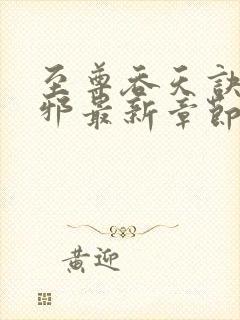 至尊吞天诀
邪最新章节
黄迎